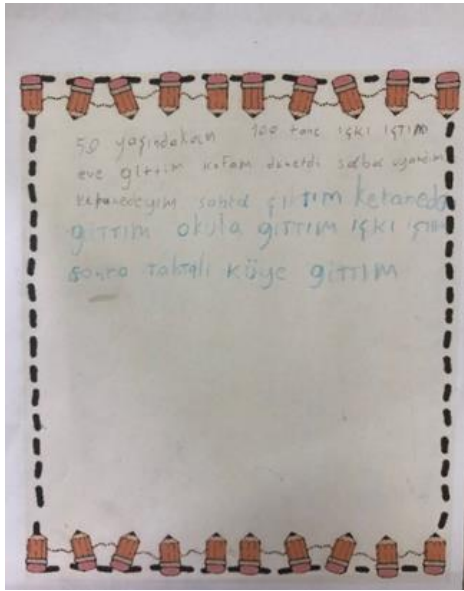 50 yaşındakan 100 tane içki içtim
eve gittim kafam dönerdi sabba uyandım
ketanedeyim sonra çıktım ketaneden
gittim okula gittim içki içtim
sonra taktalı küye gittim